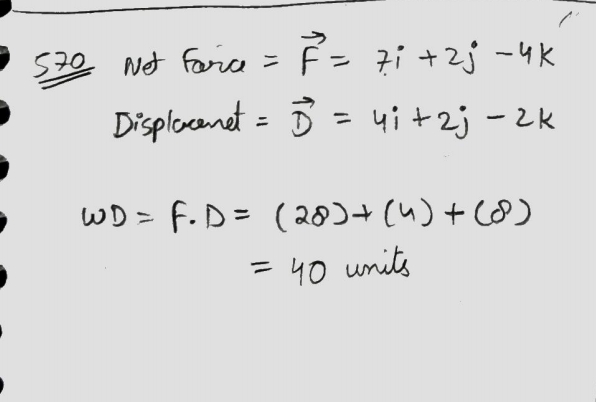 570 Net Force = F⃗ = 7i + 2j - 4k
Displacemet = D⃗ = 4i + 2j - 2k
WD = F.D = (28) + (4) + (8)
= 40 units